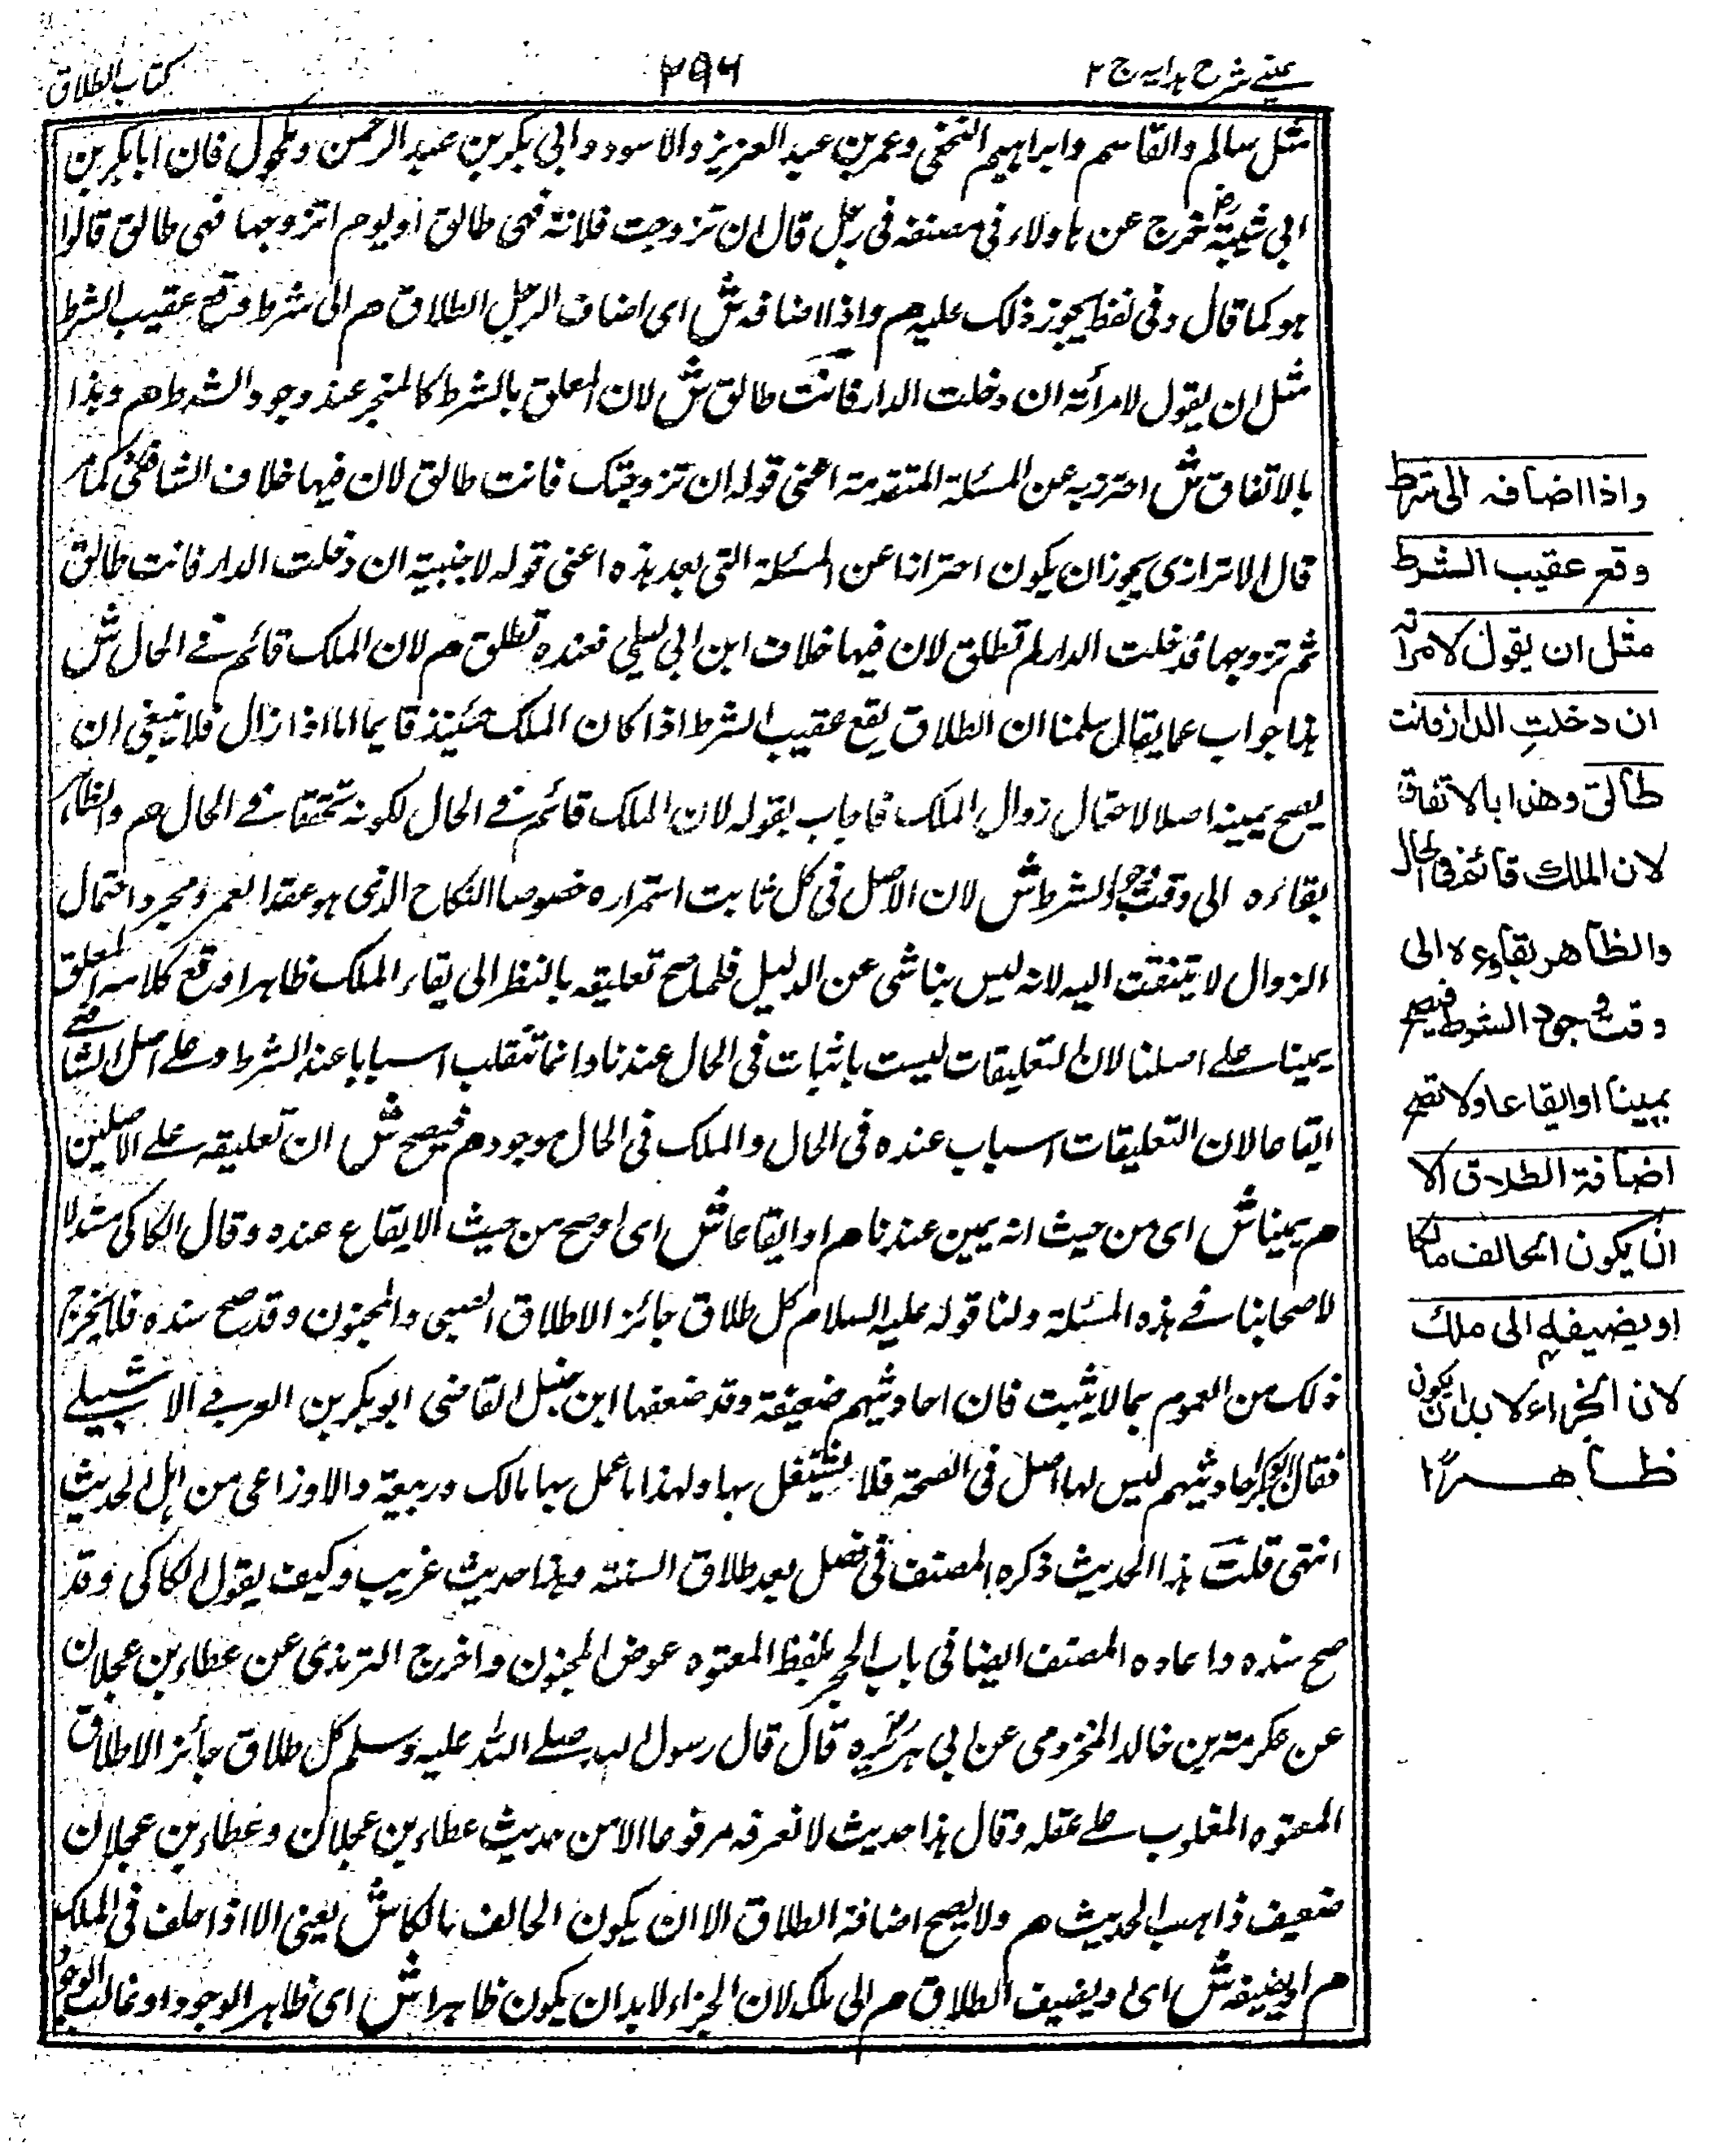 عینے شرح ہدایہ ج ٢
٢٩٦
کتاب الطلاق
مثل سالم والقاسم وابراهيم النخعي وعمر بن عبد العزيز والاسود وابي بكر بن عبد الرحمن ومكحول فان ابابكر بن
ابي شيبة رض خرج عن هاولاء في مصنفه في رجل قال ان تزوجت فلانة فهي طالق او يوم اتزوجها فهي طالق قالوا
هو كما قال وفي لفظ يجوز ذلك عليه م واذا اضافه ش اي اضاف الرجل الطلاق م الى شرط وقع عقيب الشرط
مثل ان يقول لامرأته ان دخلت الدار فانت طالق ش لان المعلق بالشرط كالمنجز عند وجود الشرط م وهذا
بالاتفاق ش احترز به عن المسئلة المتقدمة اعني قوله ان تزوجتك فانت طالق لان فيها خلاف الشافعي كما مر
قال الاترازي يجوز ان يكون احترازا عن المسئلة التي بعد هذه اعني قوله لاجنبية ان دخلت الدار فانت طالق
ثم تزوجها فدخلت الدار لم تطلق لان فيها خلاف ابن ابي ليلى فعنده تطلق م لان الملك قائم في الحال ش
هذا جواب عما يقال سلمنا ان الطلاق يقع عقيب الشرط اذا كان الملك حينئذ قايما اما اذا زال فلا ينبغي ان
يصح يمينه اصلا لاحتمال زوال الملك فاجاب بقوله لان الملك قائم في الحال لكونه متحققا في الحال م والظاهر
بقاءه الى وقت وجود الشرط ش لان الاصل في كل ثابت استمراره خصوصا النكاح الذي هو عقد العمر ومجرد احتمال
الزوال لا يتنفت اليه لانه ليس بناشى عن الدليل فلما صح تعليقه بالنظر الى بقاء الملك ظاهرا وقع كلامه المعلق
يمينا على اصلنا لان التعليقات ليست باثبات في الحال عندنا وانما تنقلب اسبابا عند الشرط وعلى اصل الشافعي
ايقاعا لان التعليقات اسباب عنده في الحال والملك في الحال موجود م فيصح ش ان تعليقه على الاصلين
م يمينا ش اي من حيث انه يمين عندنا م او ايقاعا ش اي او صح من حيث الايقاع عنده وقال الكاكي مستدلا
لاصحابنا في هذه المسئلة ولنا قوله عليه السلام كل طلاق جائز الا طلاق الصبي والمجنون وقد صح سنده فلا يخرج
ذلك من العموم بما لا يثبت فان احاديثهم ضعيفة وقد ضعفها ابن حنبل القاضى ابو بكر بن العربي الاشبيلي
فقال ابو بكر احاديثهم ليس لها اصل في الصحة فلا يشتغل بها ولهذا ما عمل بها مالك وربيعة والاوزاعي من اهل الحديث
انتهى قلت هذا الحديث ذكره المصنف في فصل بعد طلاق السنة وهذا حديث غريب وكيف يقول الكاكي وقد
صح سنده واعاده المصنف ايضا في باب الحجر بلفظ المعتوه عوض المجنون واخرج الترمذي عن عطاء بن عجلان
عن عكرمة بن خالد المخزومي عن ابي هريرة رض قال قال رسول الله صلى الله عليه وسلم كل طلاق جائز الا طلاق
المعتوه المغلوب على عقله وقال هذا حديث لا نعرفه مرفوعا الا من حديث عطاء بن عجلان وعطاء بن عجلان
ضعيف ذاهب الحديث م ولا يصح اضافة الطلاق الا ان يكون الحالف مالكا ش يعني الا اذا حلف في الملك
م او يضيفه ش اي ويضيف الطلاق م الى ملك لان الجزاء لا بد ان يكون ظاهرا ش اي ظاهر الوجود او غالب الوجود
واذا اضافه الى شرط
وقع عقيب الشرط
مثل ان يقول لامرأته
ان دخلت الدار فانت
طالق وهذا بالاتفاق
لان الملك قائم في الحال
والظاهر بقاؤه الى
وقت وجود الشرط فيصح
يمينا او ايقاعا ولا تصح
اضافة الطلاق الا
ان يكون الحالف مالكا
او يضيفه الى ملك
لان الجزاء لا بد ان يكون
ظاهرا